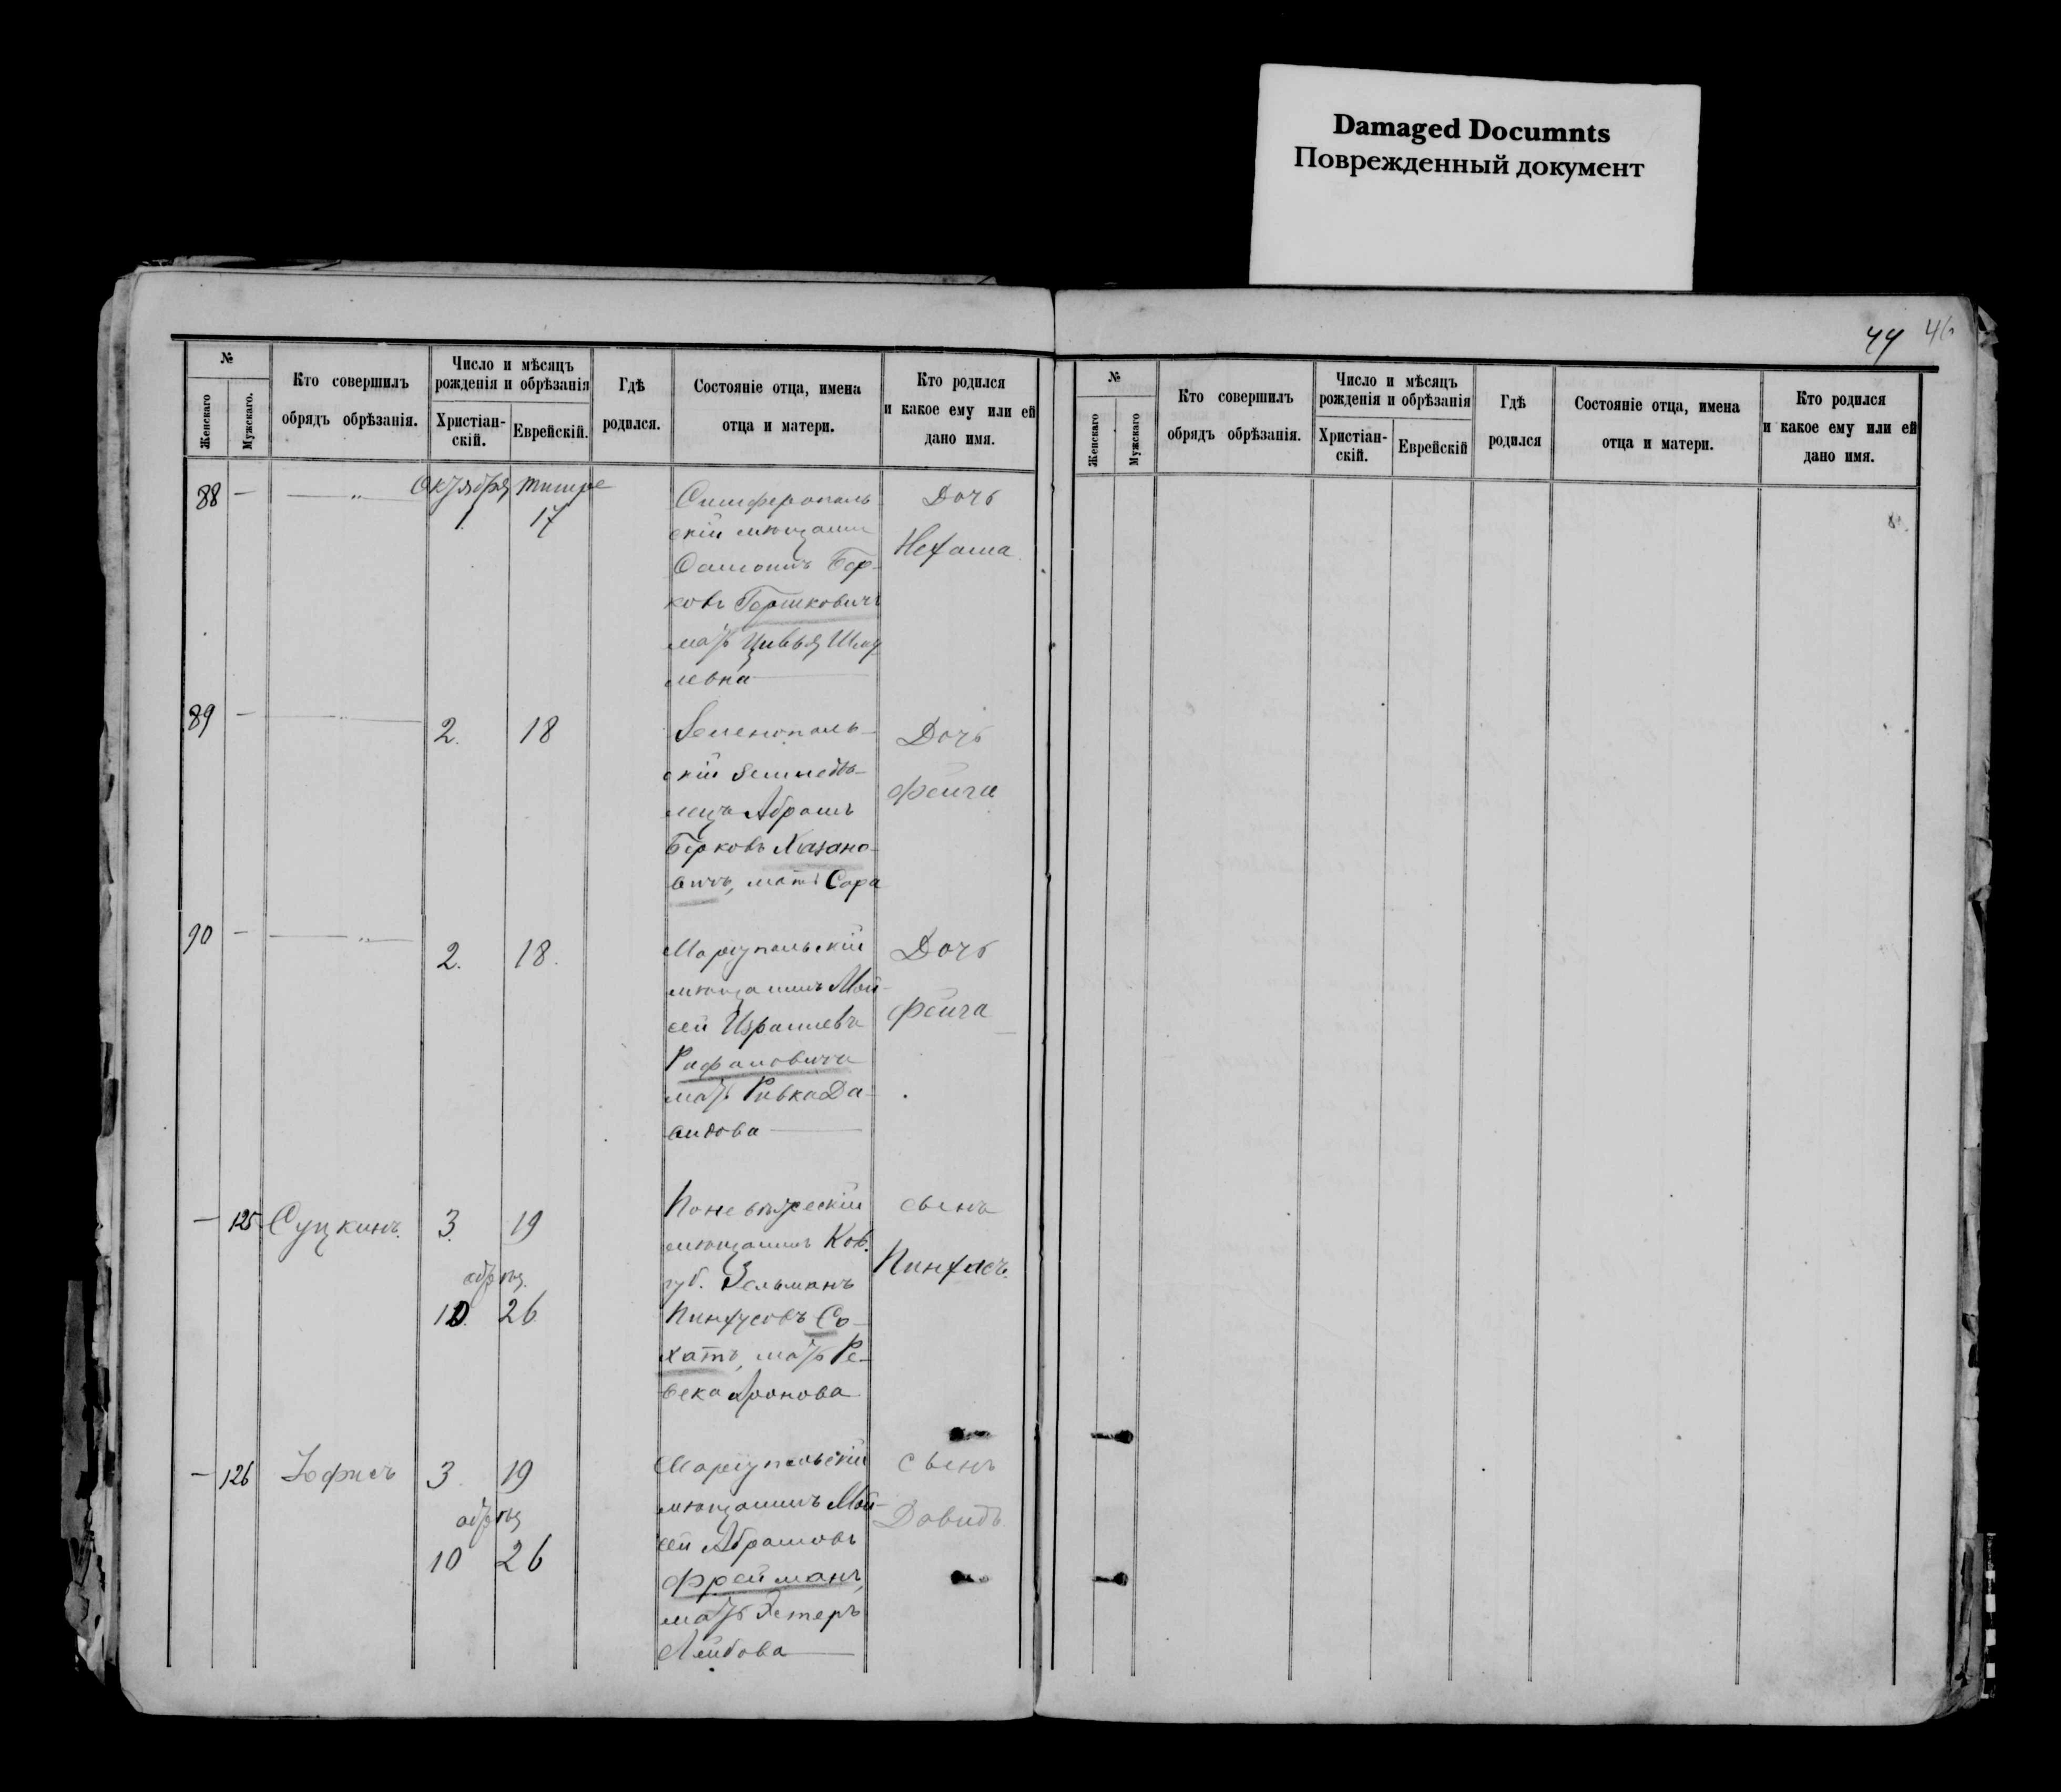 Damaged Documnts
Поврежденный документ
44 46
№
Женскаго
Мужскаго.
Кто совершилъ
обрядъ обрѣзанія.
Число и мѣсяцъ
рожденія и обрѣзанія
Христіан-
скій.
Еврейскій.
Гдѣ
родился.
Состояніе отца, имена
отца и матери.
Кто родился
и какое ему или ей
дано имя.
88 — — „ —
Октября Тишре
1 17
Симферополь
скій мѣщани
Соломонъ Бер-
ковъ Гершковичъ
мать Цивья Шму
левна
Дочь
Нехама
89 — — „ —
2. 18
Зеленополь-
скій
Абрамъ
Берковъ Хазано-
вичъ, мать Сора
Дочь
Фейга
90 — — „ —
2. 18.
Маріупольскій
мѣщанинъ Мой-
сей Израилевъ
Рафаловичъ
мать Ривка Да-
видова
Дочь
Фейга
— 125 Суцкинъ.
3. 19
обрѣз.
10. 26
Поневѣжскій
мѣщанинъ Ков.
губ. Зельманъ
Пинхусовъ Со-
хатъ, мать Ре-
века Аронова
сынъ
Пинхасъ.
— 126 Іофисъ
3 19
обрѣз
10 26
Маріупольскій
мѣщанинъ Мой-
сей Абрамовъ
Фрейманъ,
мать Эстеръ
Лейбова
сынъ
Давидъ
№
Женскаго
Мужскаго
Кто совершилъ
обрядъ обрѣзанія.
Число и мѣсяцъ
рожденія и обрѣзанія
Христіан-
скій.
Еврейскій
Гдѣ
родился
Состояніе отца, имена
отца и матери.
Кто родился
и какое ему или ей
дано имя.